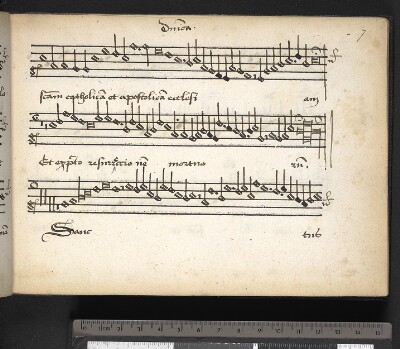 Dn̄ica. 7
sctam catholicā et apostolicā ecclesi am
Et expecto resurrectionē mortuo rū.
Sanc tus